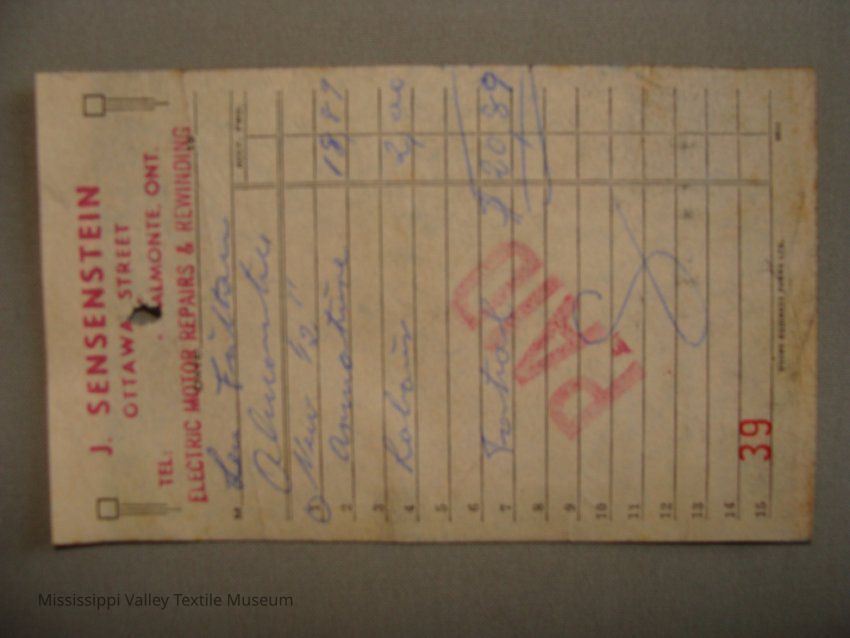 J. SENSENSTEIN
OTTAWA STREET
TEL: ALMONTE, ONT.
ELECTRIC MOTOR REPAIRS & REWINDING
M Len
Almonte
1 New 1/2"
2 armature 18 89
3
4 Labour 2 00
5
6
7 Total $ 20 89
8
9
10
11
12
13
14
15
PAID
39
Mississippi Valley Textile Museum